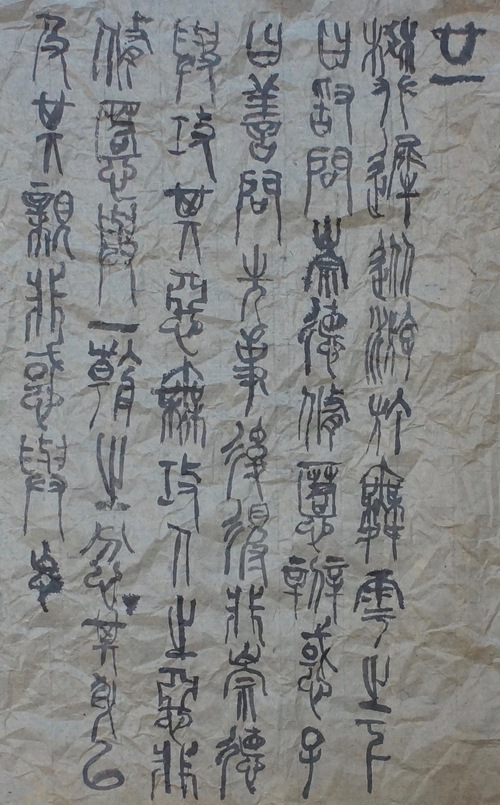 廿一
樊遲從游於舞雩之下
曰敢問崇德脩慝辨惑子
曰善問先事後得非崇德
與攻其惡無攻人之惡非
脩慝與一朝之忿其身以
及其親非惑與 忘